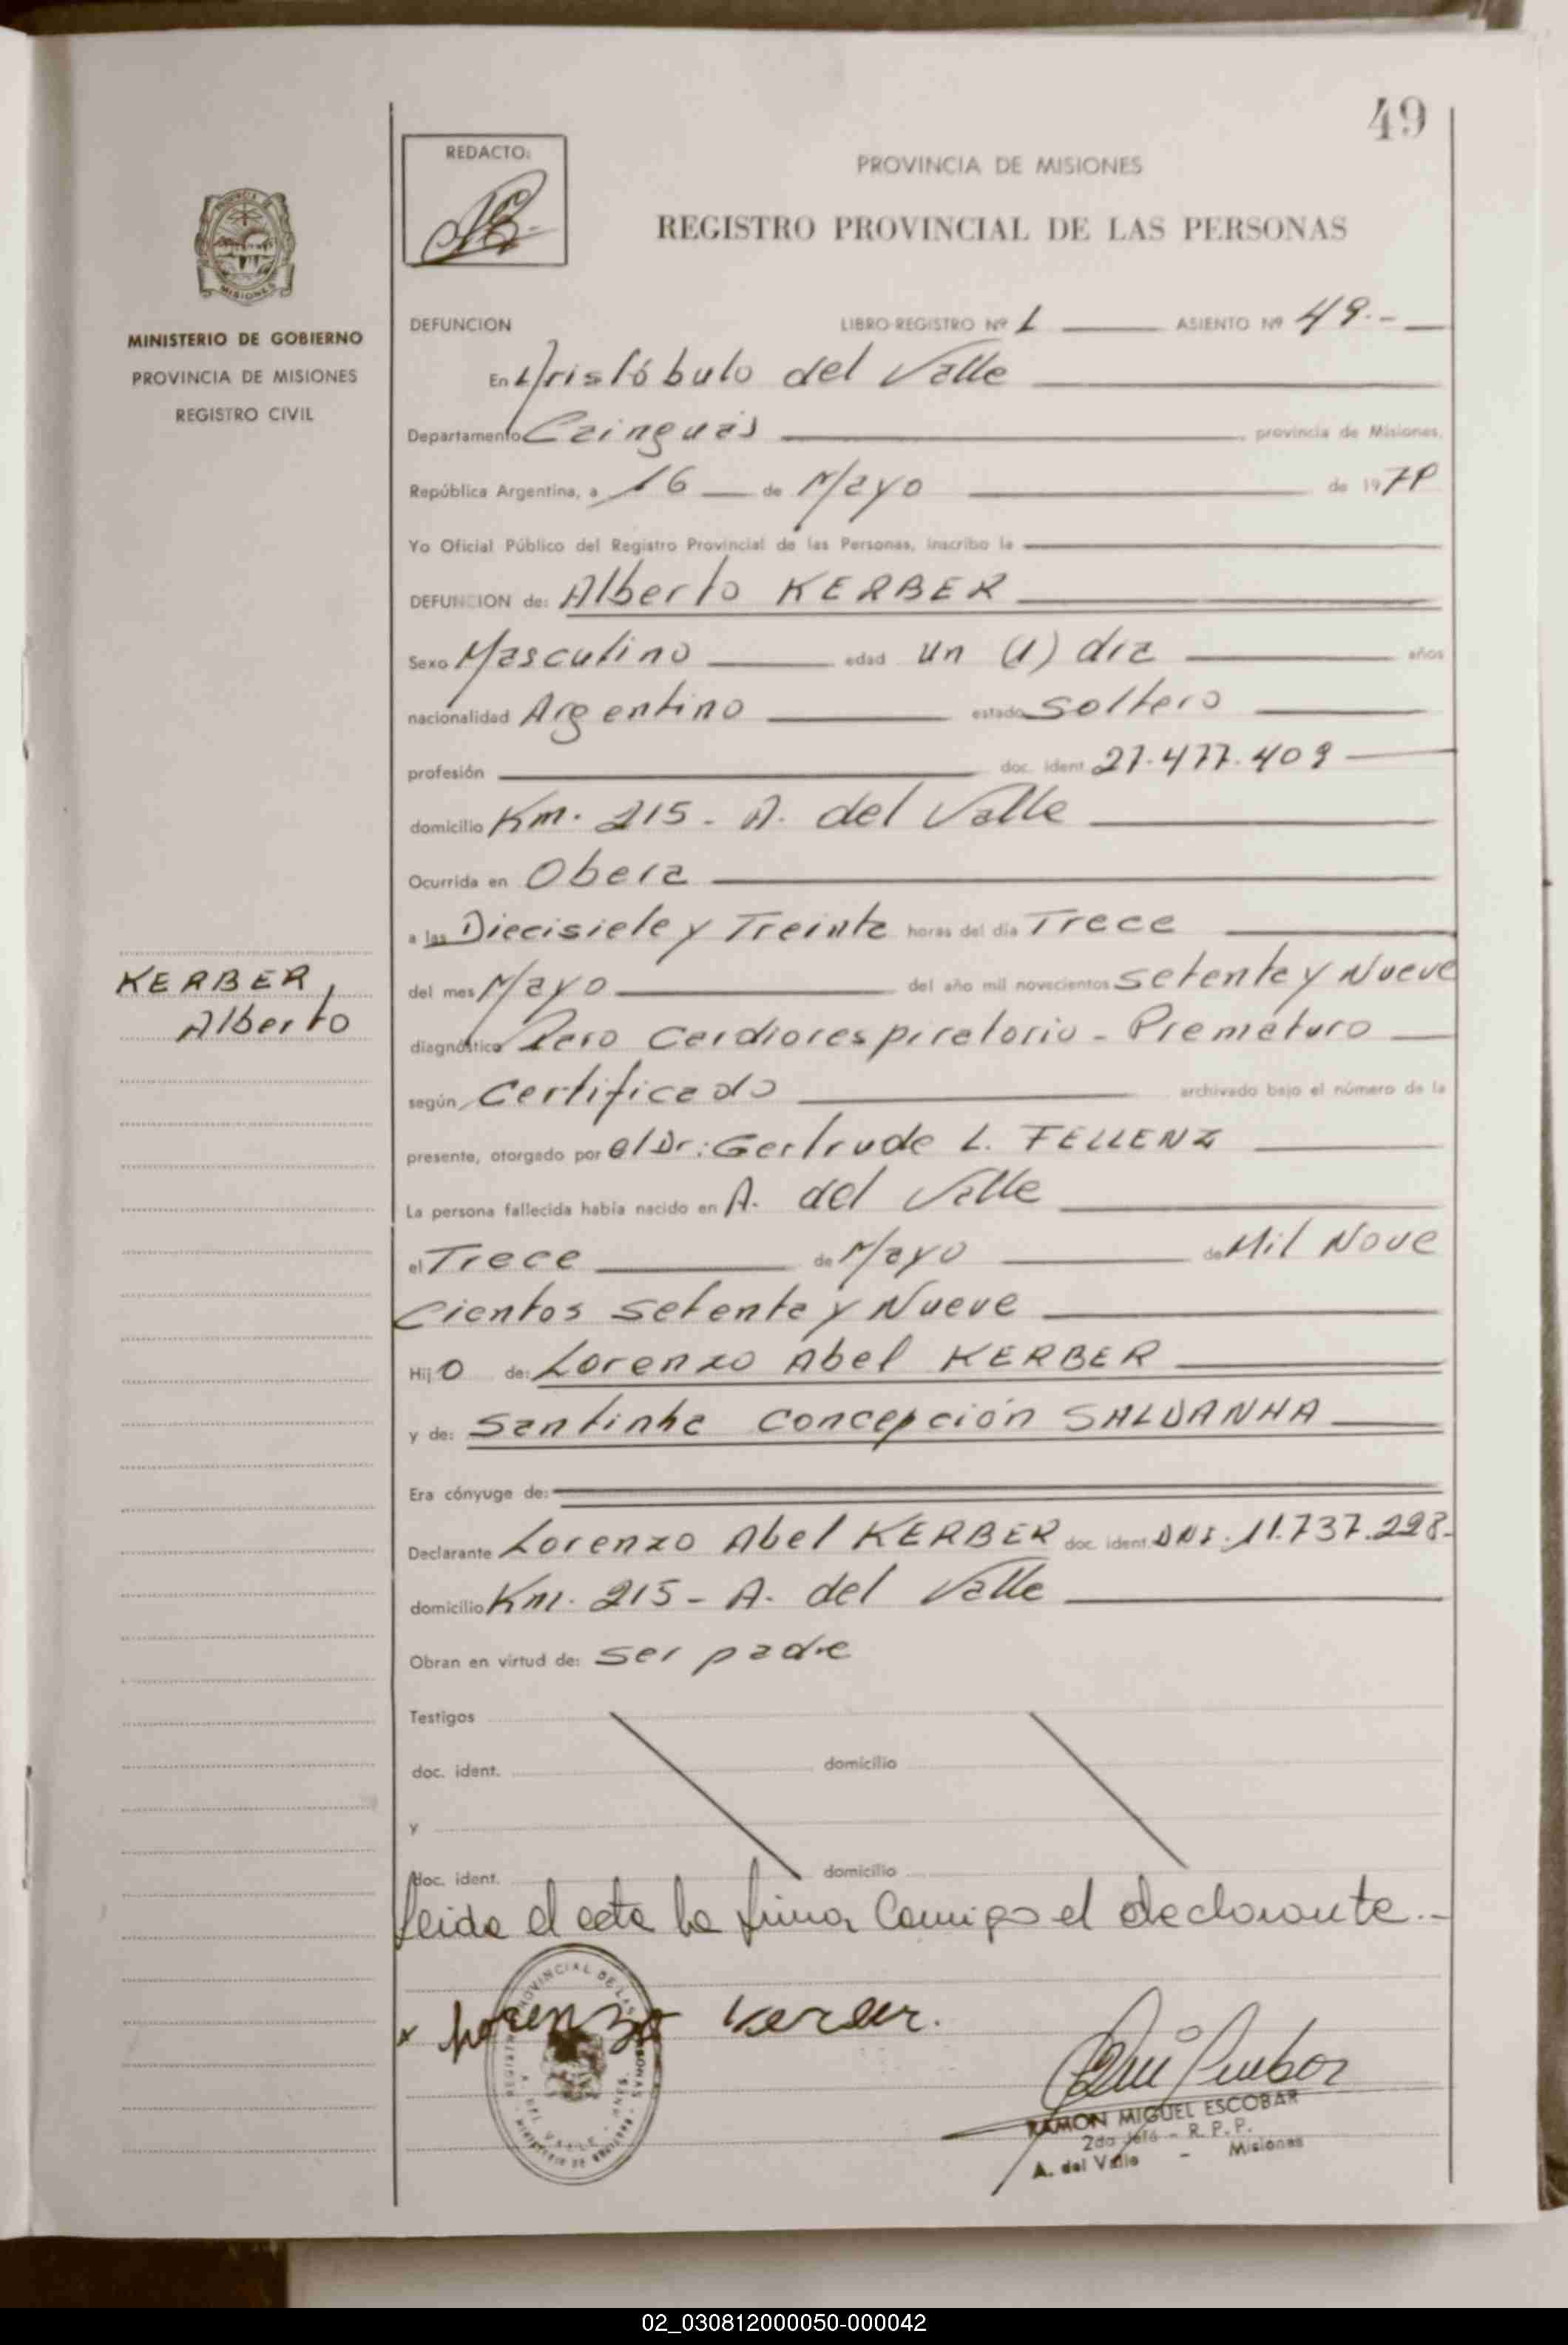 49
REDACTO:
PROVINCIA DE MISIONES
REGISTRO PROVINCIAL DE LAS PERSONAS
PROVINCIA DE
MISIONES
MINISTERIO DE GOBIERNO
PROVINCIA DE MISIONES
REGISTRO CIVIL
DEFUNCION LIBRO-REGISTRO Nº 1 ASIENTO Nº 49.-
En Aristóbulo del Valle
Departamento Cainguás, provincia de Misiones,
República Argentina, a 16 de Mayo de 1979
Yo Oficial Público del Registro Provincial de las Personas, inscribo la
DEFUNCION de: Alberto KERBER
Sexo Masculino edad un (1) dia años
nacionalidad Argentino estado Soltero
profesión doc. ident. 27.477.409
domicilio Km. 215 - A. del Valle
Ocurrida en Obera
a las Diecisiete y Treinta horas del día Trece
del mes Mayo del año mil novecientos Setenta y Nueve
KERBER,
Alberto
diagnóstico Paro Cardiorespiratorio - Prematuro
según Certificado archivado bajo el número de la
presente, otorgado por el Dr: Gertrude L. FELLENZ
La persona fallecida había nacido en A. del Valle
el Trece de Mayo de Mil Nove
cientos Setenta y Nueve
Hijo de: Lorenzo Abel KERBER
y de: Santinha Concepción SALDANHA
Era cónyuge de:
Declarante Lorenzo Abel KERBER doc. ident. DNI. 11.737.298-
domicilio Km. 215 - A. del Valle
Obran en virtud de: Ser padre
Testigos
doc. ident. domicilio
y
doc. ident. domicilio
Leida el acta la firma conmigo el declarante.-
Lorenzo Kerber.
RAMON MIGUEL ESCOBAR
2do Jefe - R. P. P.
A. del Valle - Misiones
02_030812000050-000042